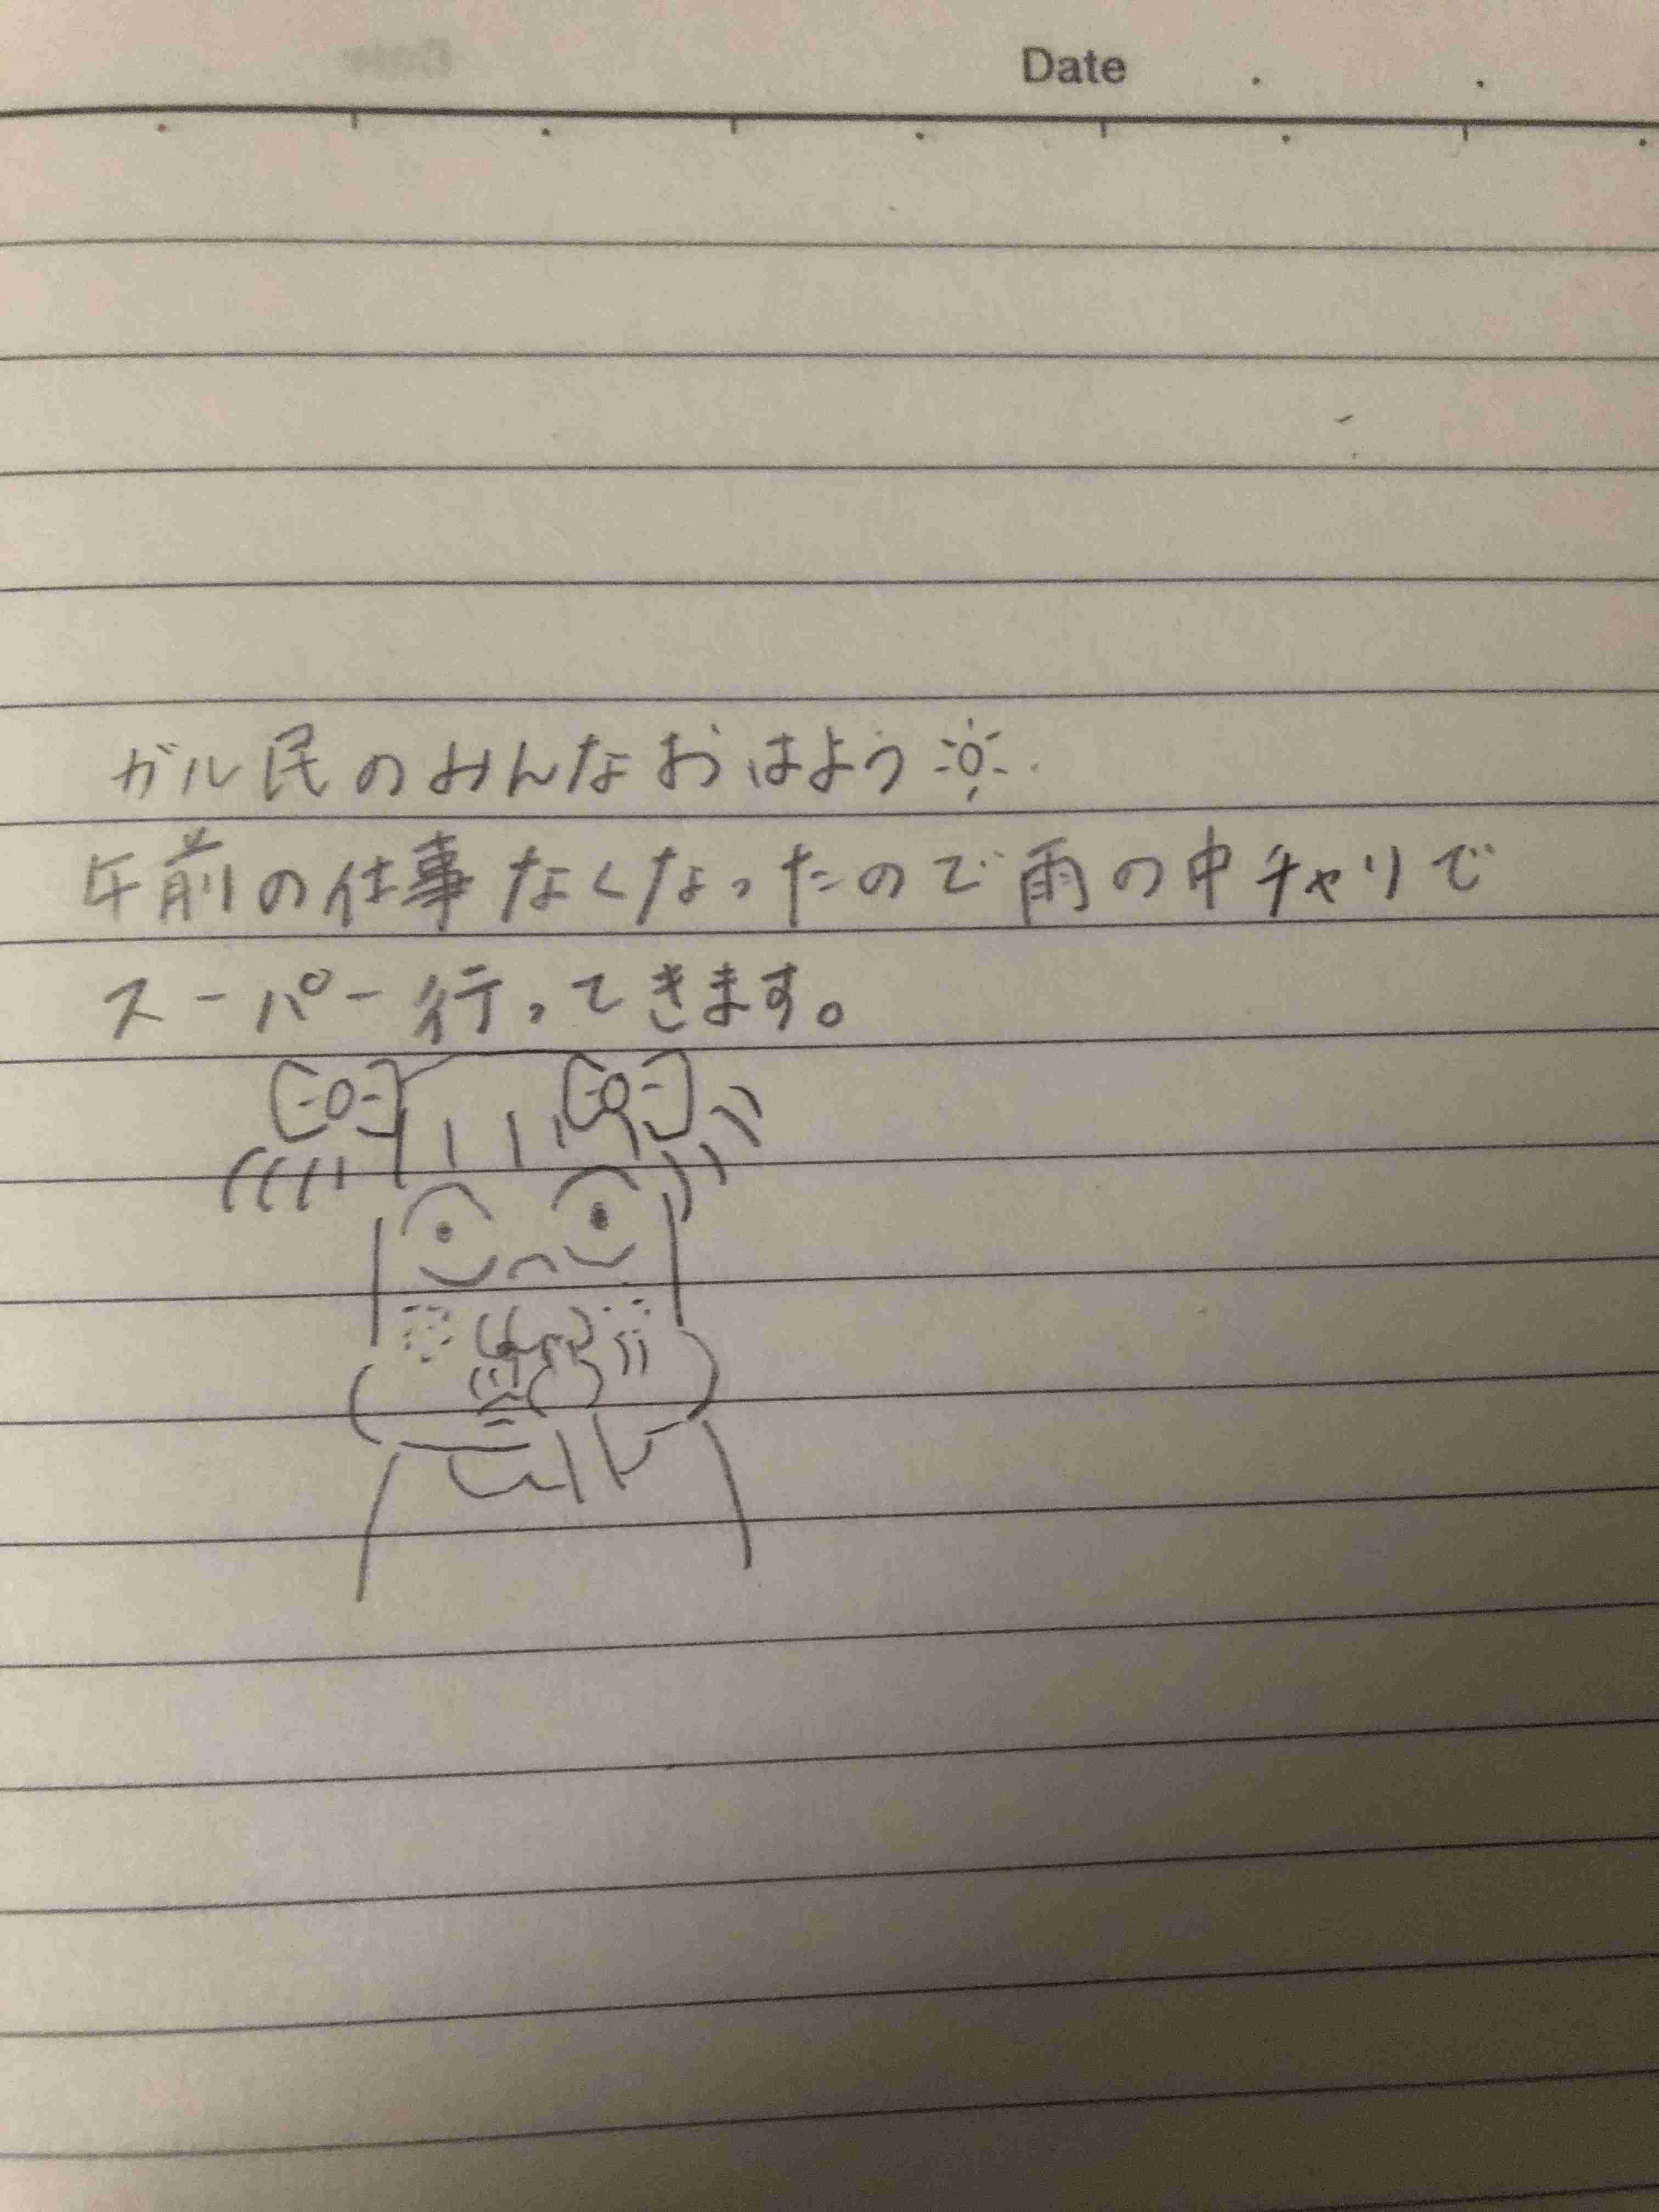 Date
ガル民のみんなおはよう
午前の仕事なくなったので雨の中チャリで
スーパー行ってきます。